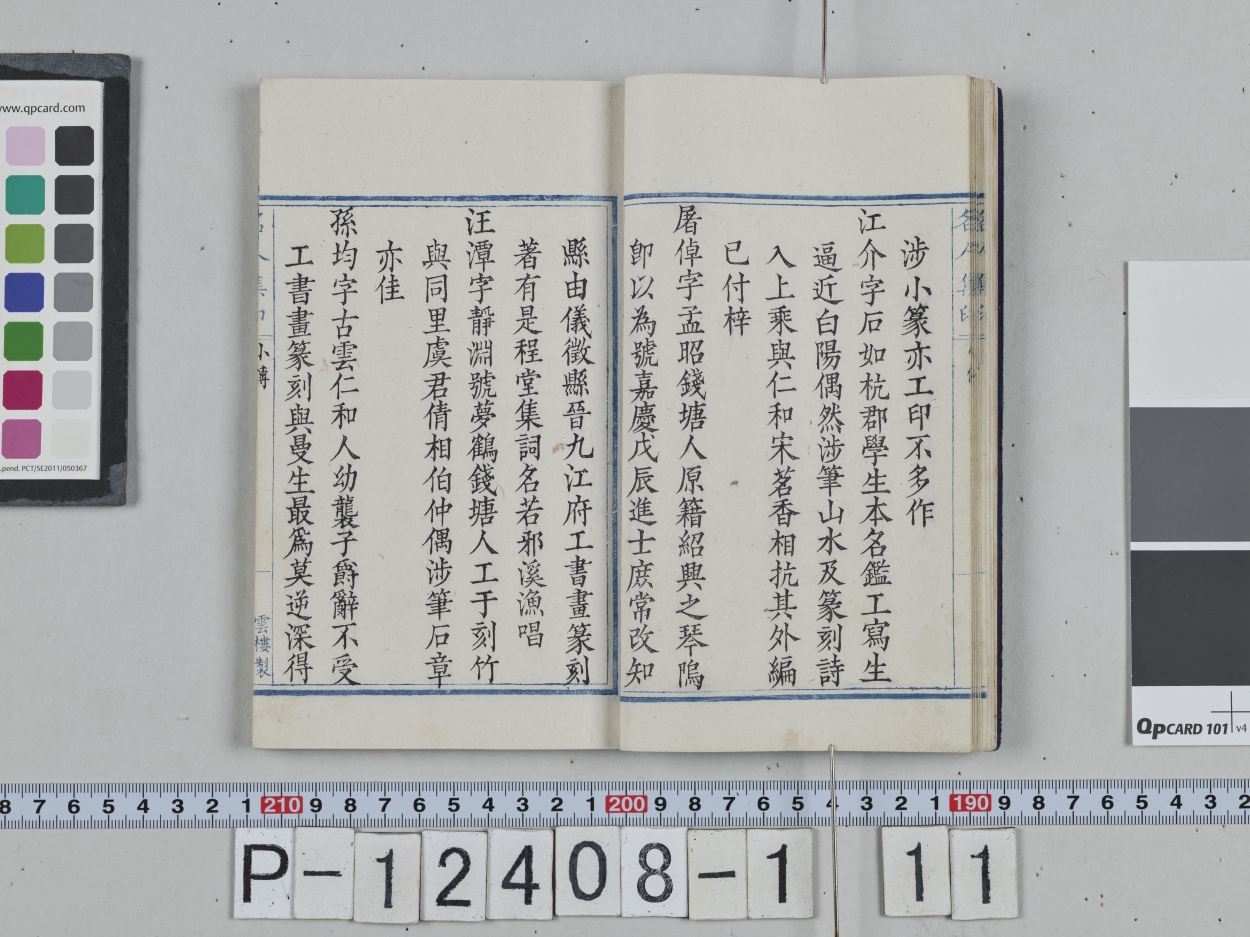 涉小篆亦工印不多作
江介字石如杭郡學生本名鑑工寫生
逼近白陽偶然涉筆山水及篆刻詩
入上乘與仁和宋茗香相抗其外編
已付梓
屠倬字孟昭錢塘人原籍紹興之琴隝
卽以為號嘉慶戊辰進士庶常改知
縣由儀徵縣晉九江府工書畫篆刻
著有是程堂集詞名若邪溪漁唱
汪潭字靜淵號夢鶴錢塘人工于刻竹
與同里虞君倩相伯仲偶涉筆石章
亦佳
孫均字古雲仁和人幼襲子爵辭不受
工書畫篆刻與曼生最爲莫逆深得
小傳
雲樓製
www.qpcard.com
pend. PCT/SE2011/050367
QPCARD 101 v4
8 7 6 5 4 3 2 1 210 9 8 7 6 5 4 3 2 1 200 9 8 7 6 5 4 3 2 1 190 9 8 7 6 5 4 3 2
P-12408-1 11